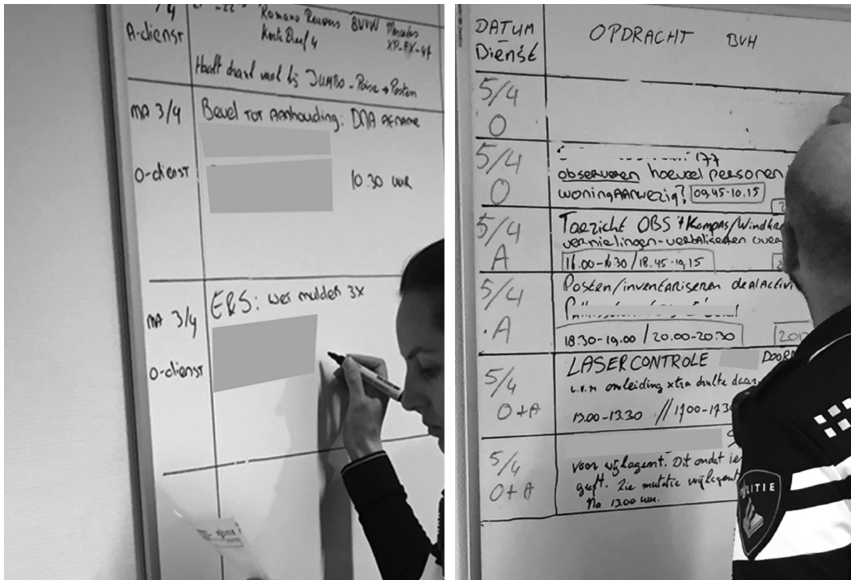 A-dienst
Korte Dreef 4
BVVW
Mercedes
Houdt zich veel bij JUMBO - Poise → Posten
MA 3/4
Bevel tot aanhouding: DNA afname
O-dienst
10.30 uur
MA 3/4
E&S: wet mulder 3x
O-dienst
DATUM
Dienst
OPDRACHT BVH
5/4
O
5/4
O
177
observeren hoeveel personen
woning aanwezig? 09.45-10.15
5/4
A
Toezicht OBS 't Kompas/Windk
vernielingen-verbaliseren over
16.00-16.30 / 18.45-19.15
5/4
A
Posten/inventariseren dealactivi
18.30-19.00 / 20.00-20.30
5/4
O+A
LASERCONTROLE
DOOR
i.v.m omleiding xtra drukte daar
13.00-13.30 // 17.00-17.30
5/4
O+A
voor wijkagent. Dit omdat ie
geeft. Zie mutatie wijkagent
Na 13.00 uur.
POLITIE